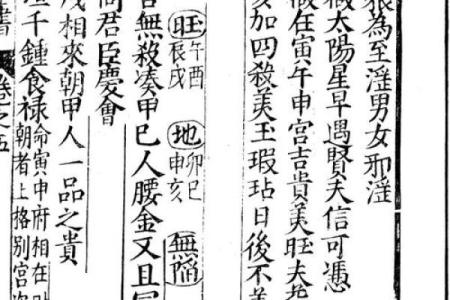 狼為至淫男女邪淫
太陽星早遇賢夫信可憑
在寅午申宮吉貴美旺夫
加四殺美玉瑕玷日後不美
旺 午酉辰戌 地 卯巳申亥 無陷
無殺湊甲巳人腰金又且
君臣慶會
相來朝甲人一品之貴
千鍾食禄 命寅申府相在 朝者上格別宮次
書 卷之五